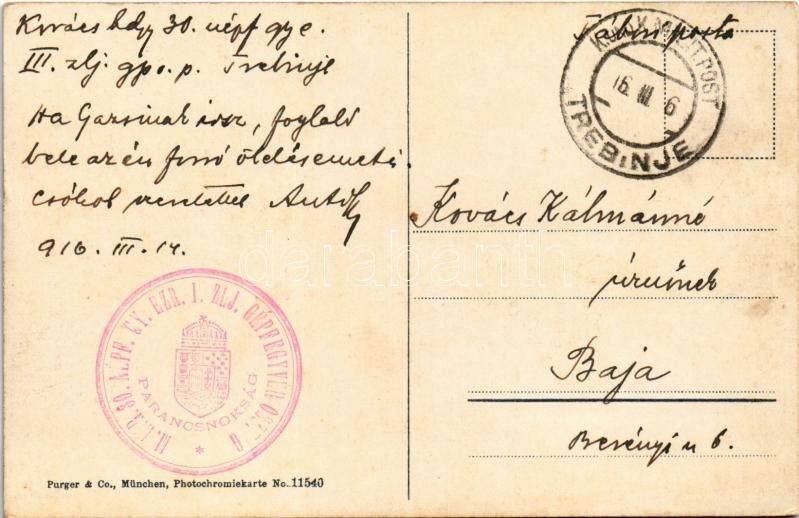 Kovács hdgy 30. népf gy e.
III. zlj. gpo. p. Trebinje
Ha Gazsinak irsz, foglald
bele az én forró ölelésemet is
csókol szeretettel
916. III. 14.
M. KIR. 30. NÉPF. GY. EZR. I. ZLJ. GÉPFEGYVER OSZT.
PARANCSNOKSÁG
Purger & Co., München, Photochromiekarte No. 11540
Tábori posta
K.u.K. MILIT. POST
16. III. 6
TREBINJE
Kovács Kálmánné
úrnőnek
Baja
Berényi u 6.
darabanth